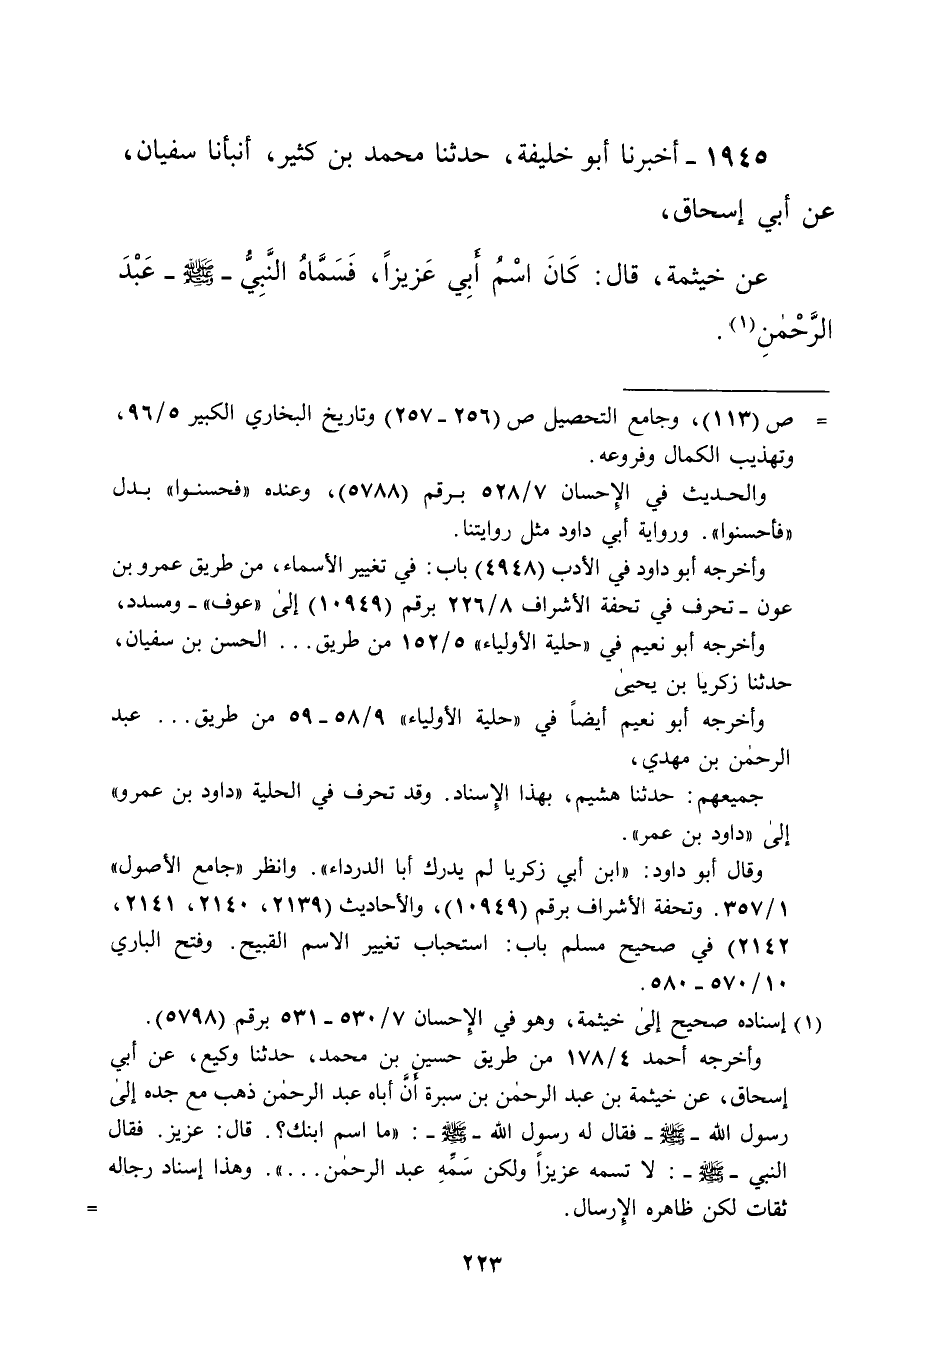 ١٩٤٥ ـ أخبرنا أبو خليفة، حدثنا محمد بن كثير، أنبأنا سفيان،
عن أبي إسحاق،
عن خيثمة، قال: كَانَ اسْمُ أَبِي عَزِيزاً، فَسَمَّاهُ النَّبِيُّ ـ ﷺ ـ عَبْدَ
الرَّحْمٰنِ(١).
= ص (١١٣)، وجامع التحصيل ص (٢٥٦ ـ ٢٥٧) وتاريخ البخاري الكبير ٩٦/٥،
وتهذيب الكمال وفروعه.
والحديث في الإحسان ٥٢٨/٧ برقم (٥٧٨٨)، وعنده «فحسنوا» بدل
«فأحسنوا». ورواية أبي داود مثل روايتنا.
وأخرجه أبو داود في الأدب (٤٩٤٨) باب: في تغيير الأسماء، من طريق عمرو بن
عون ـ تحرف في تحفة الأشراف ٢٢٦/٨ برقم (١٠٩٤٩) إلىٰ «عوف» ـ ومسدد،
وأخرجه أبو نعيم في «حلية الأولياء» ١٥٢/٥ من طريق... الحسن بن سفيان،
حدثنا زكريا بن يحيىٰ
وأخرجه أبو نعيم أيضاً في «حلية الأولياء» ٥٨/٩ ـ ٥٩ من طريق... عبد
الرحمٰن بن مهدي،
جميعهم: حدثنا هشيم، بهذا الإسناد. وقد تحرف في الحلية «داود بن عمرو»
إلىٰ «داود بن عمر».
وقال أبو داود: «ابن أبي زكريا لم يدرك أبا الدرداء». وانظر «جامع الأصول»
٣٥٧/١. وتحفة الأشراف برقم (١٠٩٤٩)، والأحاديث (٢١٣٩، ٢١٤٠، ٢١٤١،
٢١٤٢) في صحيح مسلم باب: استحباب تغيير الاسم القبيح. وفتح الباري
٥٧٠/١٠ ـ ٥٨٠.
(١) إسناده صحيح إلىٰ خيثمة، وهو في الإحسان ٥٣٠/٧ ـ ٥٣١ برقم (٥٧٩٨).
وأخرجه أحمد ١٧٨/٤ من طريق حسين بن محمد، حدثنا وكيع، عن أبي
إسحاق، عن خيثمة بن عبد الرحمٰن بن سبرة أَنَّ أباه عبد الرحمٰن ذهب مع جده إلىٰ
رسول الله ـ ﷺ ـ فقال له رسول الله ـ ﷺ ـ : «ما اسم ابنك؟. قال: عزيز. فقال
النبي ـ ﷺ ـ : لا تسمه عزيزاً ولكن سَمِّهِ عبد الرحمٰن...». وهذا إسناد رجاله
ثقات لكن ظاهره الإرسال. =
٢٢٣